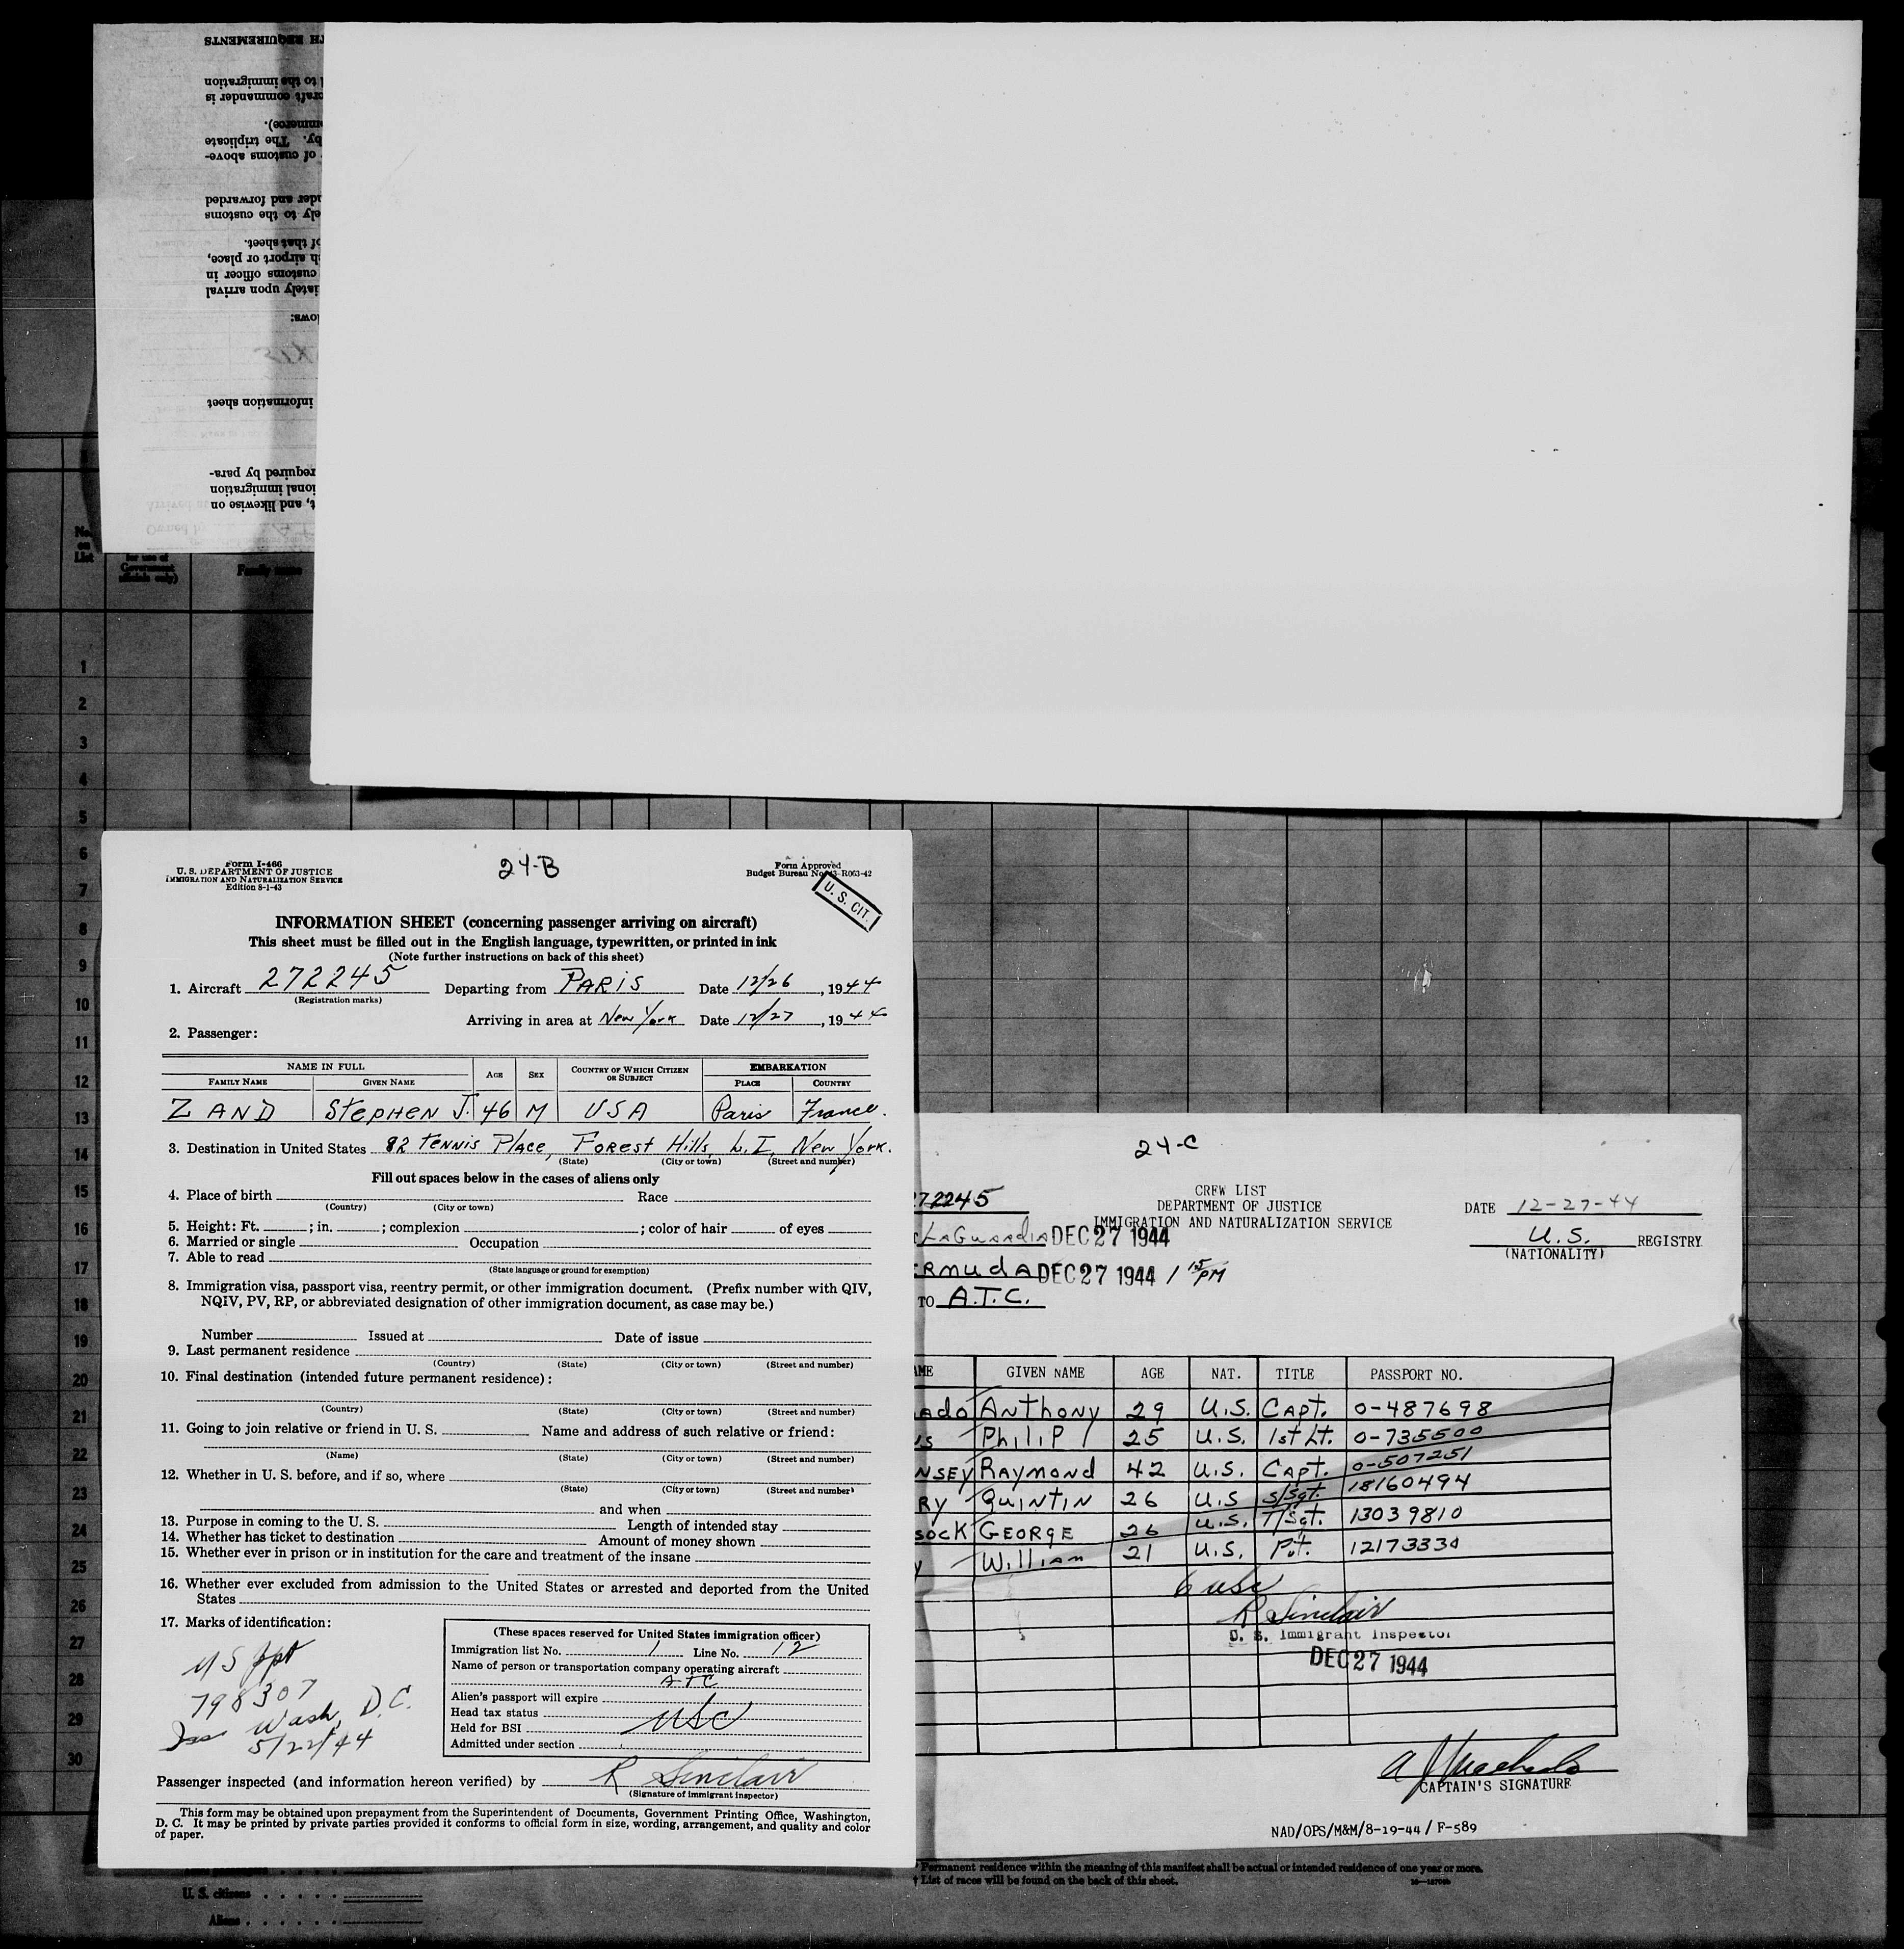 TH REQUIREMENTS
to the immigration
craft commander is
ommerce).
by. The triplicate
of customs above-
der and forwarded
ely to the customs
of that sheet.
h airport or place,
customs officer in
iately upon arrival
lows:
information sheet
required by para-
ional immigration
t, and likewise on
Owned by
No.
on
List
for use of
Government
officials only)
Family name
1
2
3
4
5
6
7
8
9
10
11
12
13
14
15
16
17
18
19
20
21
22
23
24
25
26
27
28
29
30
Form I-466
U. S. DEPARTMENT OF JUSTICE
IMMIGRATION AND NATURALIZATION SERVICE
Edition 8-1-43
24-B
Form Approved
Budget Bureau No. 43-R063-42
U. S. CIT.
INFORMATION SHEET (concerning passenger arriving on aircraft)
This sheet must be filled out in the English language, typewritten, or printed in ink
(Note further instructions on back of this sheet)
1. Aircraft 272245 Departing from PARIS Date 12/26, 1944
(Registration marks)
Arriving in area at New York Date 12/27, 1944
2. Passenger:
NAME IN FULL AGE SEX COUNTRY OF WHICH CITIZEN OR SUBJECT EMBARKATION
FAMILY NAME GIVEN NAME PLACE COUNTRY
ZAND STEPHEN J. 46 M USA Paris France.
3. Destination in United States 82 TENNIS Place, FOREST Hills, L.I. New York.
(State) (City or town) (Street and number)
Fill out spaces below in the cases of aliens only
4. Place of birth Race
(Country) (City or town)
5. Height: Ft. ; in. ; complexion ; color of hair of eyes
6. Married or single Occupation
7. Able to read
(State language or ground for exemption)
8. Immigration visa, passport visa, reentry permit, or other immigration document. (Prefix number with QIV,
NQIV, PV, RP, or abbreviated designation of other immigration document, as case may be.)
Number Issued at Date of issue
9. Last permanent residence
(Country) (State) (City or town) (Street and number)
10. Final destination (intended future permanent residence):
(Country) (State) (City or town) (Street and number)
11. Going to join relative or friend in U. S. Name and address of such relative or friend:
(Name) (State) (City or town) (Street and number)
12. Whether in U. S. before, and if so, where
(State) (City or town) (Street and number)
and when
13. Purpose in coming to the U. S. Length of intended stay
14. Whether has ticket to destination Amount of money shown
15. Whether ever in prison or in institution for the care and treatment of the insane
16. Whether ever excluded from admission to the United States or arrested and deported from the United
States
17. Marks of identification:
US ppt
798307
Iss Wash, D.C.
5/22/44
(These spaces reserved for United States immigration officer)
Immigration list No. 1 Line No. 12
Name of person or transportation company operating aircraft
ATC
Alien's passport will expire
Head tax status USC
Held for BSI
Admitted under section
Passenger inspected (and information hereon verified) by R Sinclair
(Signature of immigrant inspector)
This form may be obtained upon prepayment from the Superintendent of Documents, Government Printing Office, Washington,
D. C. It may be printed by private parties provided it conforms to official form in size, wording, arrangement, and quality and color
of paper.
24-C
72245
CREW LIST
DEPARTMENT OF JUSTICE
IMMIGRATION AND NATURALIZATION SERVICE
DATE 12-27-44
U.S. REGISTRY
(NATIONALITY)
LaGuardia DEC 27 1944
ERMUdA DEC 27 1944 / 15 PM
TO A.T.C.
ME GIVEN NAME AGE NAT. TITLE PASSPORT NO.
ado ANTHONY 29 U.S. CAPT. 0-487698
s PhiliP 25 U.S. 1st Lt. 0-735500
NSEY RAYMONd 42 U.S. CAPT. 0-507251
RY QUINTIN 26 U.S S/Sgt. 18160494
SOCK GEORGE 26 U.S. T/Sgt. 13039810
y William 21 U.S. Pvt. 12173330
6 usc
R Sinclair
U. S. Immigrant Inspector
DEC 27 1944
A J Machado
CAPTAIN'S SIGNATURE
NAD/OPS/M&M/8-19-44 / F-589
Permanent residence within the meaning of this manifest shall be actual or intended residence of one year or more.
† List of races will be found on the back of this sheet.
U. S. citizens
Aliens